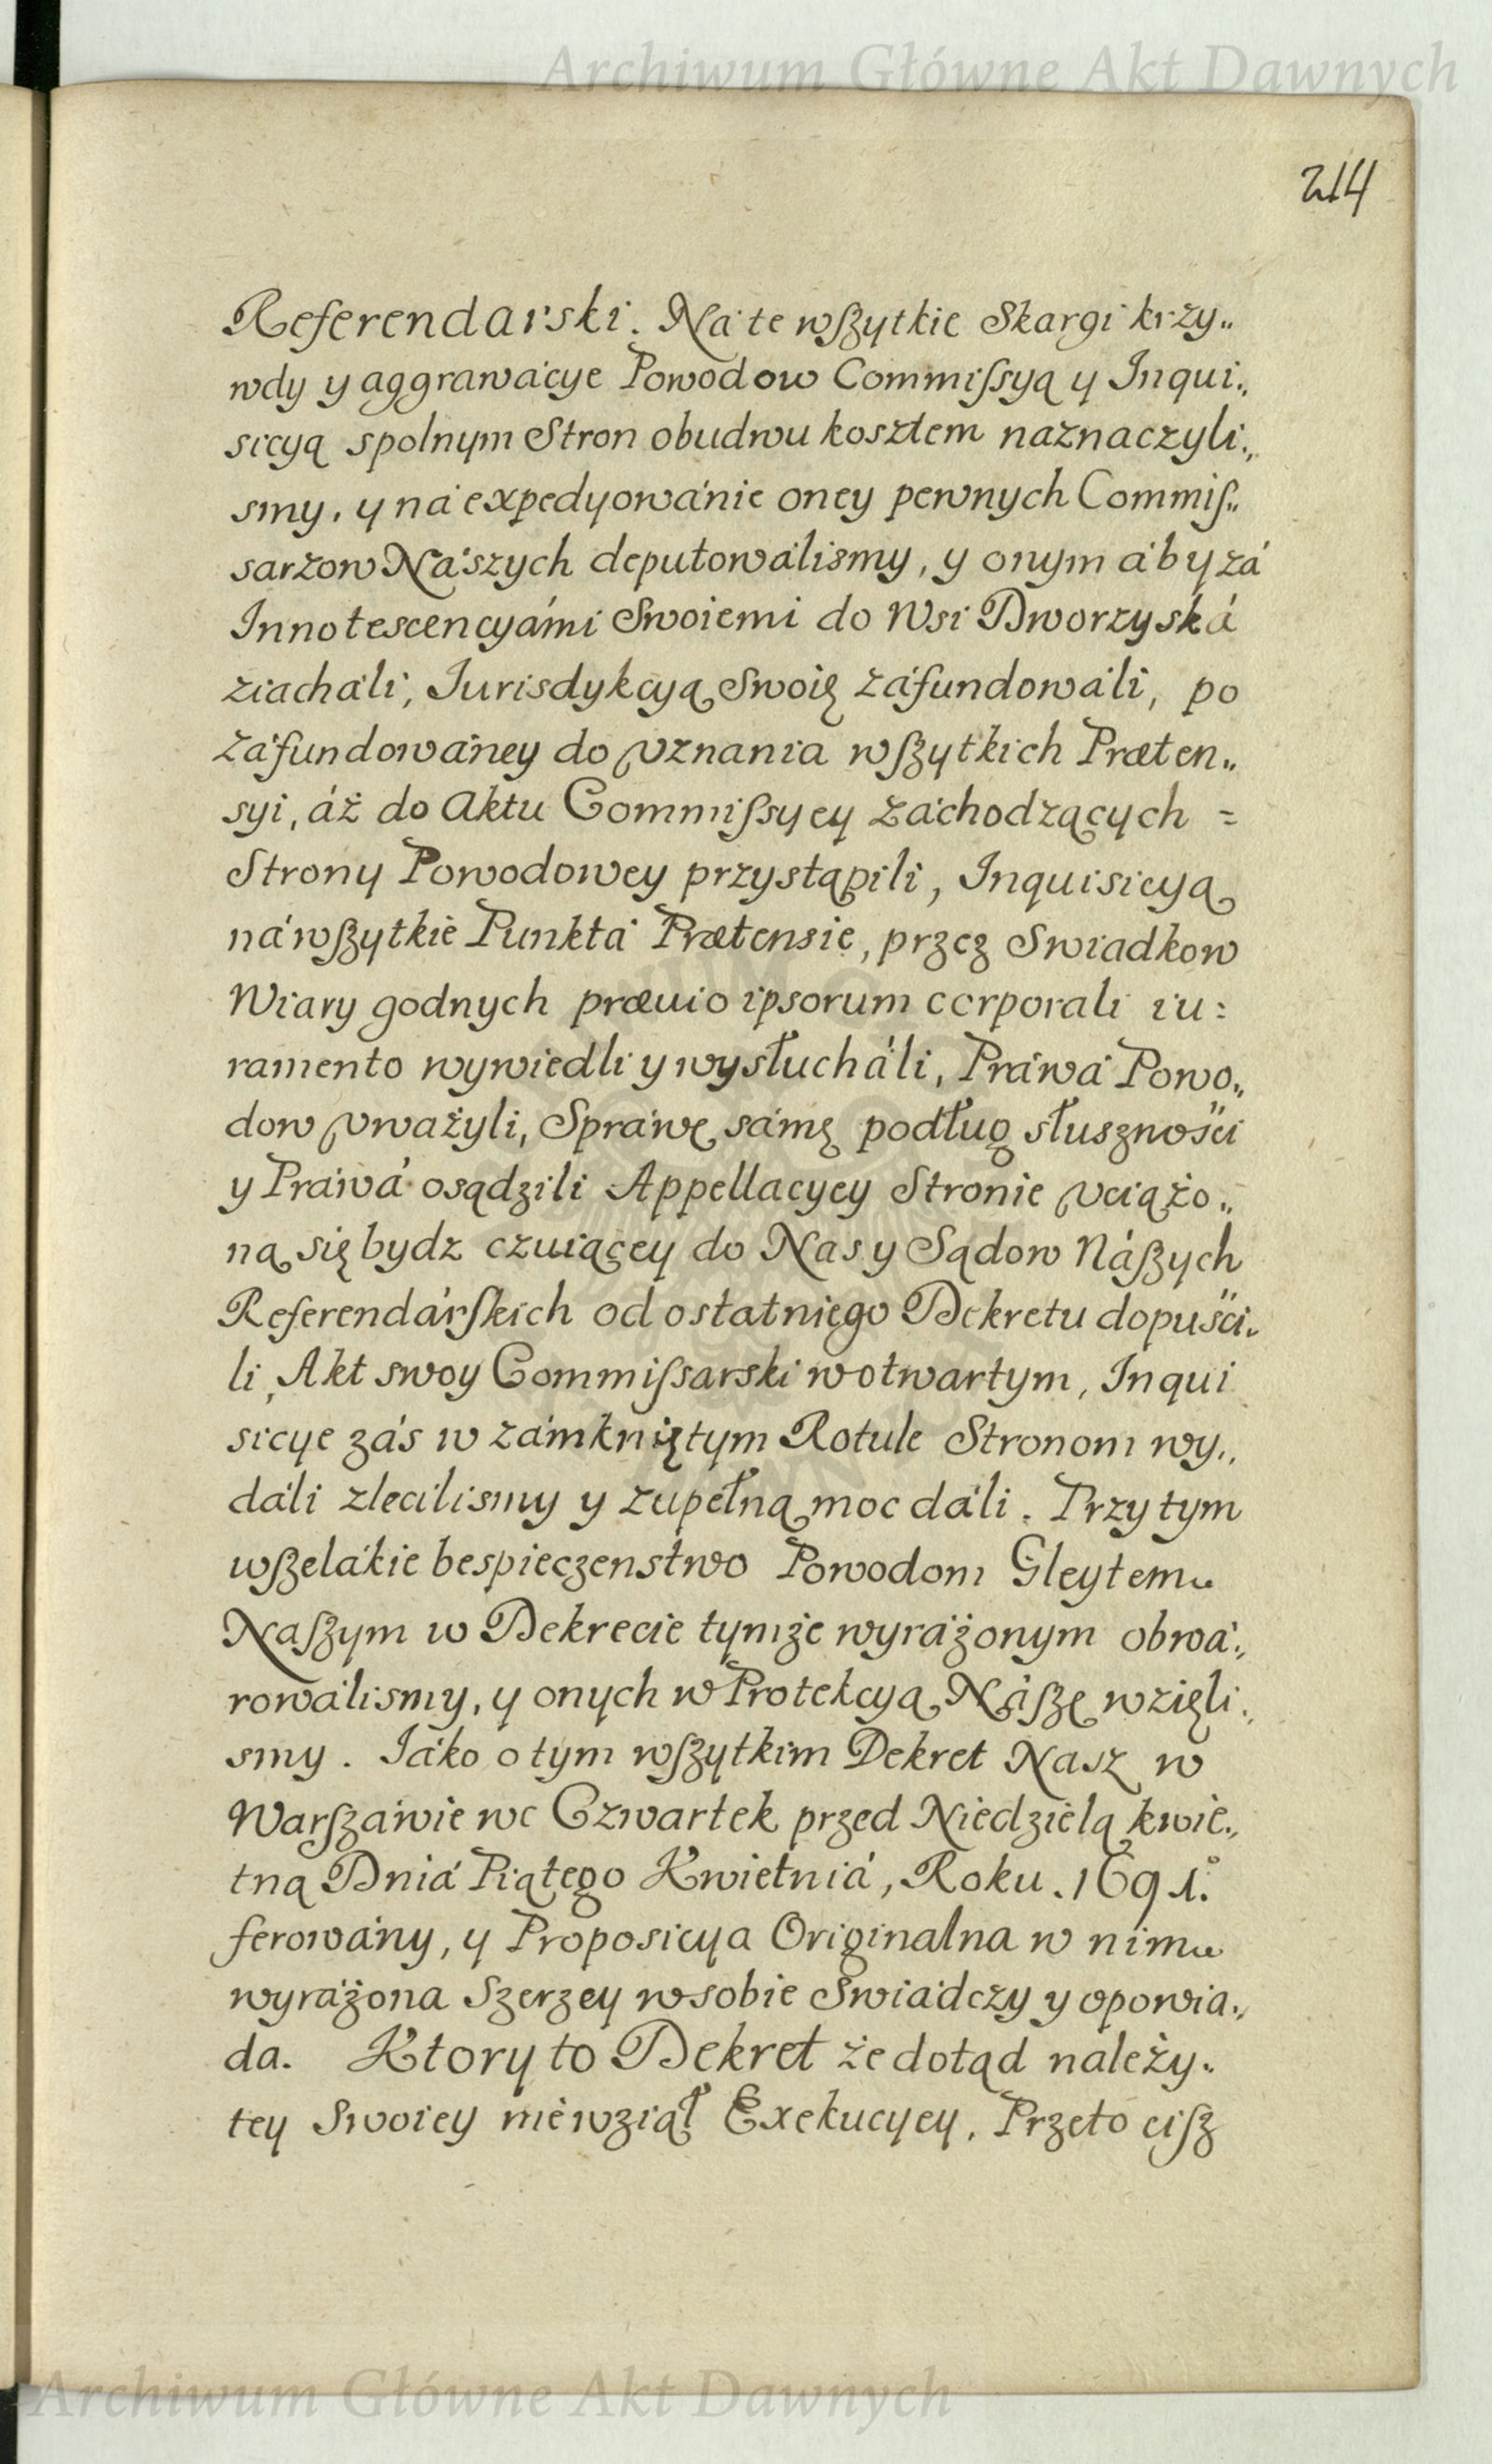 Archiwum Główne Akt Dawnych
214
Referendarski. Ná te wſzytkie Skargi krzy„
wdy y aggrawácye Powodow Commiſsyą y Inqui„
sicyą spolnym Stron obudwu kosztem náznaczyli„
smy, y ná expedyowánie oney pewnych Commiſ„
sarzow Nászych deputowálismy, y onym áby zá
Innotescencyámi Swoiemi do Wsi Dworzyská
ziácháli, Iurisdykcyą Swoię záfundowáli, po
záfundowáney do vznania wſzytkich Præten„
syi, áż do Aktu Commiſsyey záchodzących =
Strony Powodowey przystąpili, Inquisicyą
ná wſzytkie Punktá Prætensie, przez Swiadkow
Wiary godnych prævio ipsorum corporali iu:
ramento wywiedli y wysłucháli, Práwá Powo„
dow vważyli, Spráwę sámę podług słuszności
y Práwá osądzili Appellacyey Stronie vciążo„
ną się bydz czuiącey do Nas y Sądow Nászych
Referendárſkich od ostatniego Dekretu dopuści„
li, Akt swoy Commiſsarski w otwartym, Inqui
sicye zás w zámkniętym Rotule Stronom wy„
dáli zlecilismy y zupełną moc dáli. Przy tym
wſzelákie bespieczenstwo Powodom Gleytem
Naſzym w Dekrecie tymże wyráżonym obwá„
rowálismy, y onych w Protekcyą Náſzę wzięli„
smy. Iáko o tym wſzytkim Dekret Nasz w
Warſzáwie we Czwartek przed Niedzielą kwie„
tną Dniá Piątego Kwietniá, Roku. 1691.°
ferowány, y Proposicya Originalna w nim
wyráżona Szerzey w sobie Swiádczy y opowia„
da. Ktory to Dekret że dotąd należy„
tey Swoiey niewziął Exekucyey, Przeto ciſz
Archiwum Główne Akt Dawnych